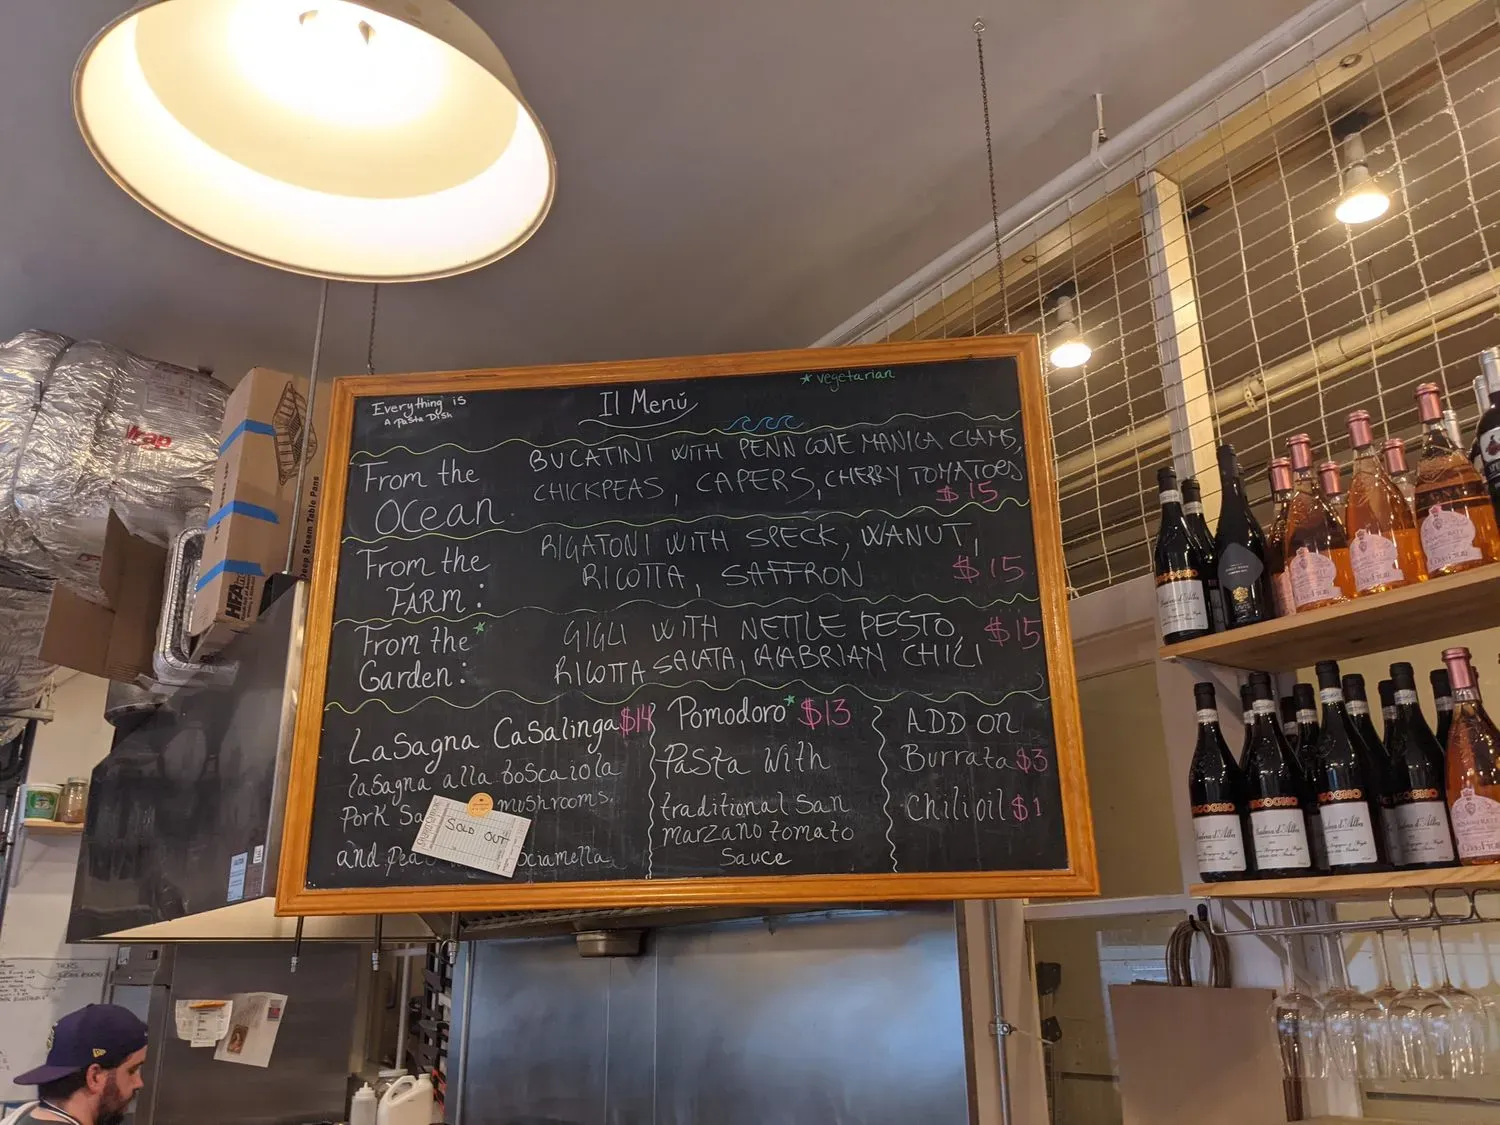 Everything is
A Pasta Dish
Il Menú
* vegetarian
From the
Ocean
BUCATINI WITH PENN COVE MANILA CLAMS,
CHICKPEAS, CAPERS, CHERRY TOMATOES
$15
From the
FARM:
RIGATONI WITH SPECK, WANUT,
RICOTTA, SAFFRON
$15
From the *
Garden:
GIGLI WITH NETTLE PESTO,
RICOTTA SALATA, CALABRIAN CHILI
$15
Lasagna Casalinga $14
lasagna alla boscaiola
Pork Sa
mushrooms.
and peas
ciamella
SOLD OUT
Pomodoro * $13
Pasta with
traditional San
marzano tomato
Sauce
ADD ON
Burrata $3
Chili oil $1
Wrap
Deep Steam Table Pans